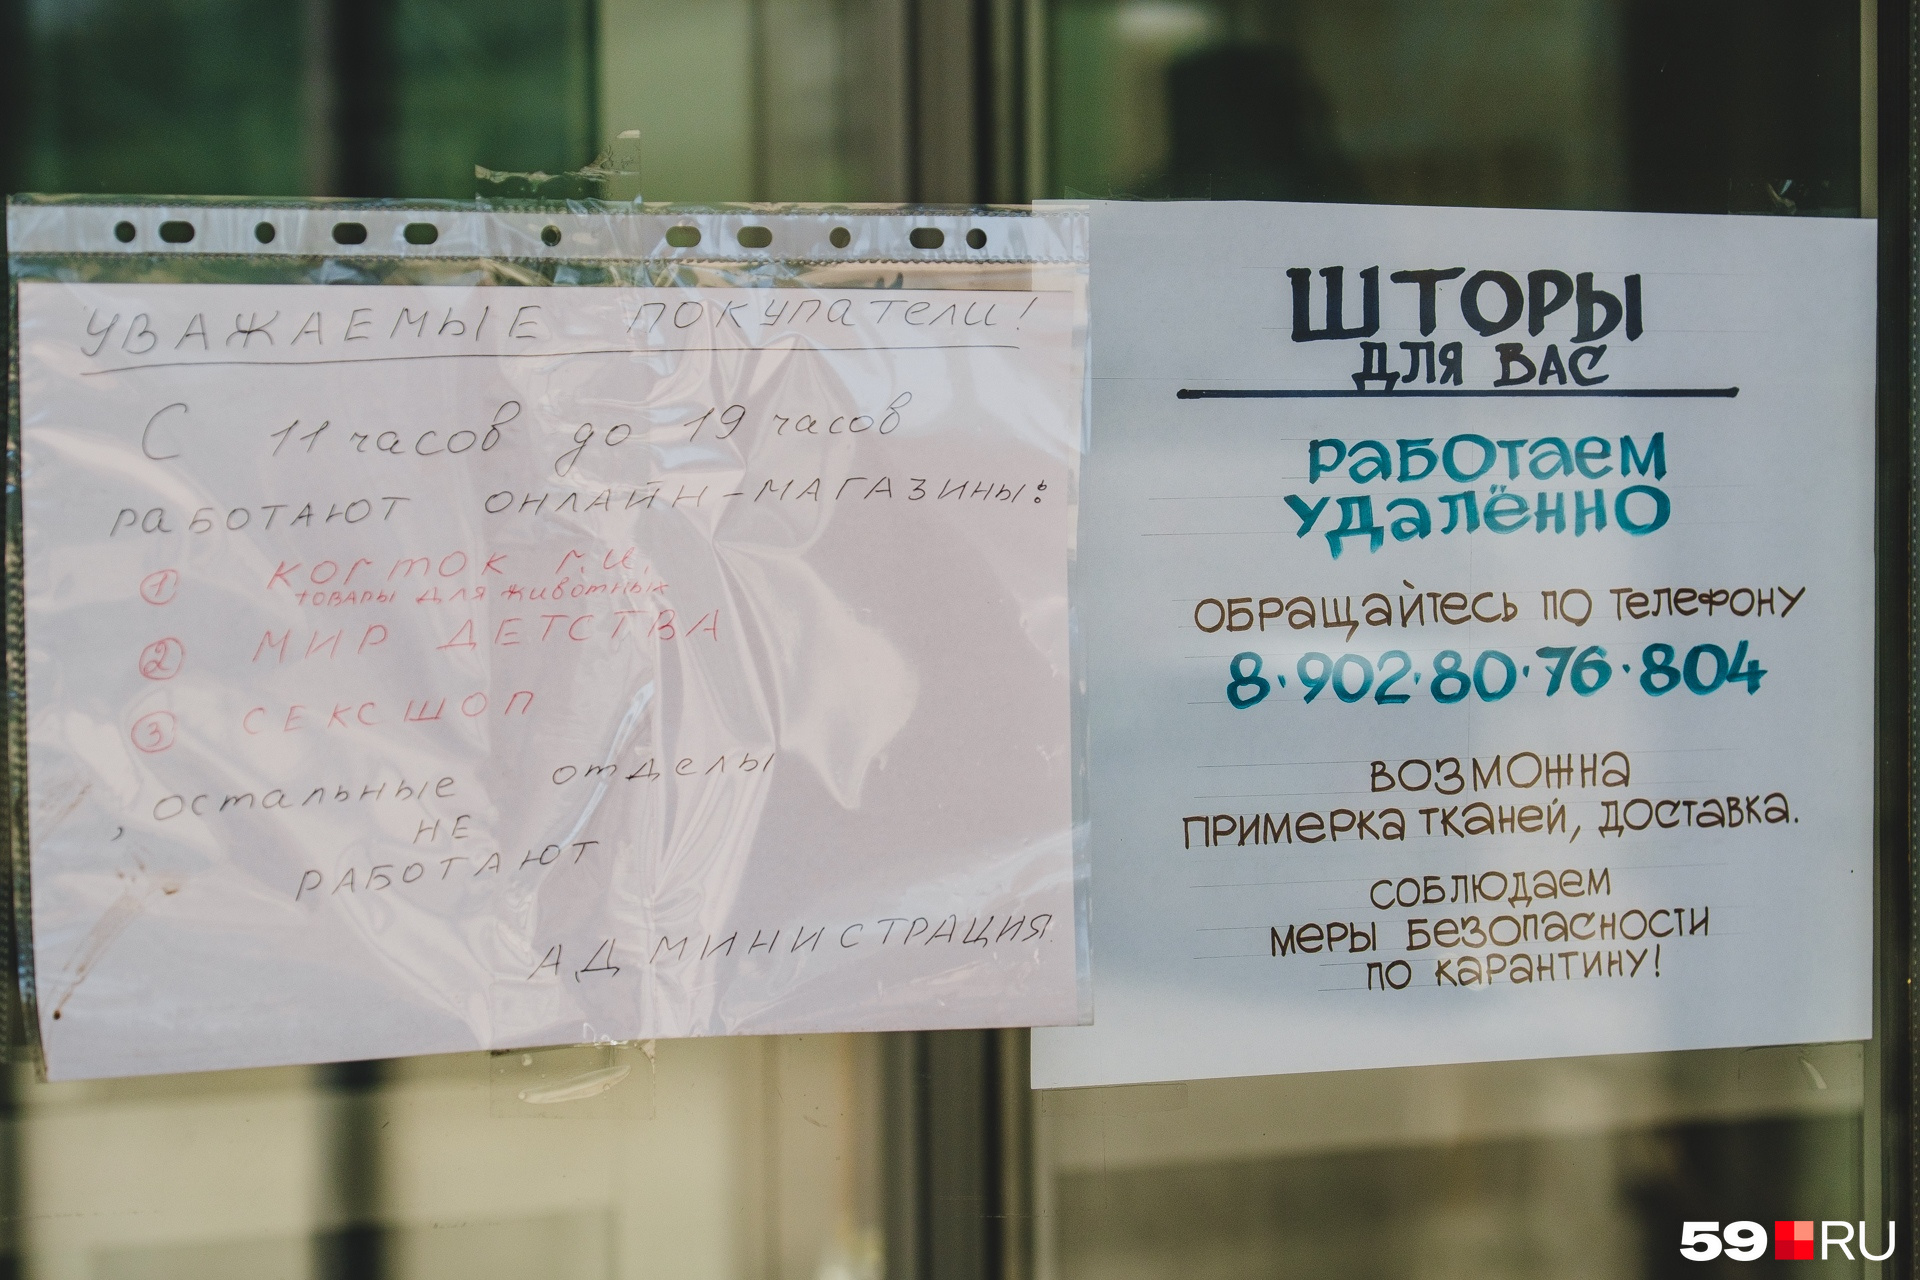 УВАЖАЕМЫЕ ПОКУПАТЕЛИ!
С 11 часов до 19 часов
РАБОТАЮТ ОНЛАЙН-МАГАЗИНЫ:
① КОГТОК г.и.
ТОВАРЫ ДЛЯ ЖИВОТНЫХ
② МИР ДЕТСТВА
③ СЕКСШОП
, остальные отделы
НЕ
РАБОТАЮТ
АДМИНИСТРАЦИЯ.
ШТОРЫ
ДЛЯ ВАС
РАБОТАЕМ
УДАЛЁННО
ОБРАЩАЙТЕСЬ ПО ТЕЛЕФОНУ
8·902·80·76·804
ВОЗМОЖНА
ПРИМЕРКА ТКАНЕЙ, ДОСТАВКА.
СОБЛЮДАЕМ
МЕРЫ БЕЗОПАСНОСТИ
ПО КАРАНТИНУ!
59 RU